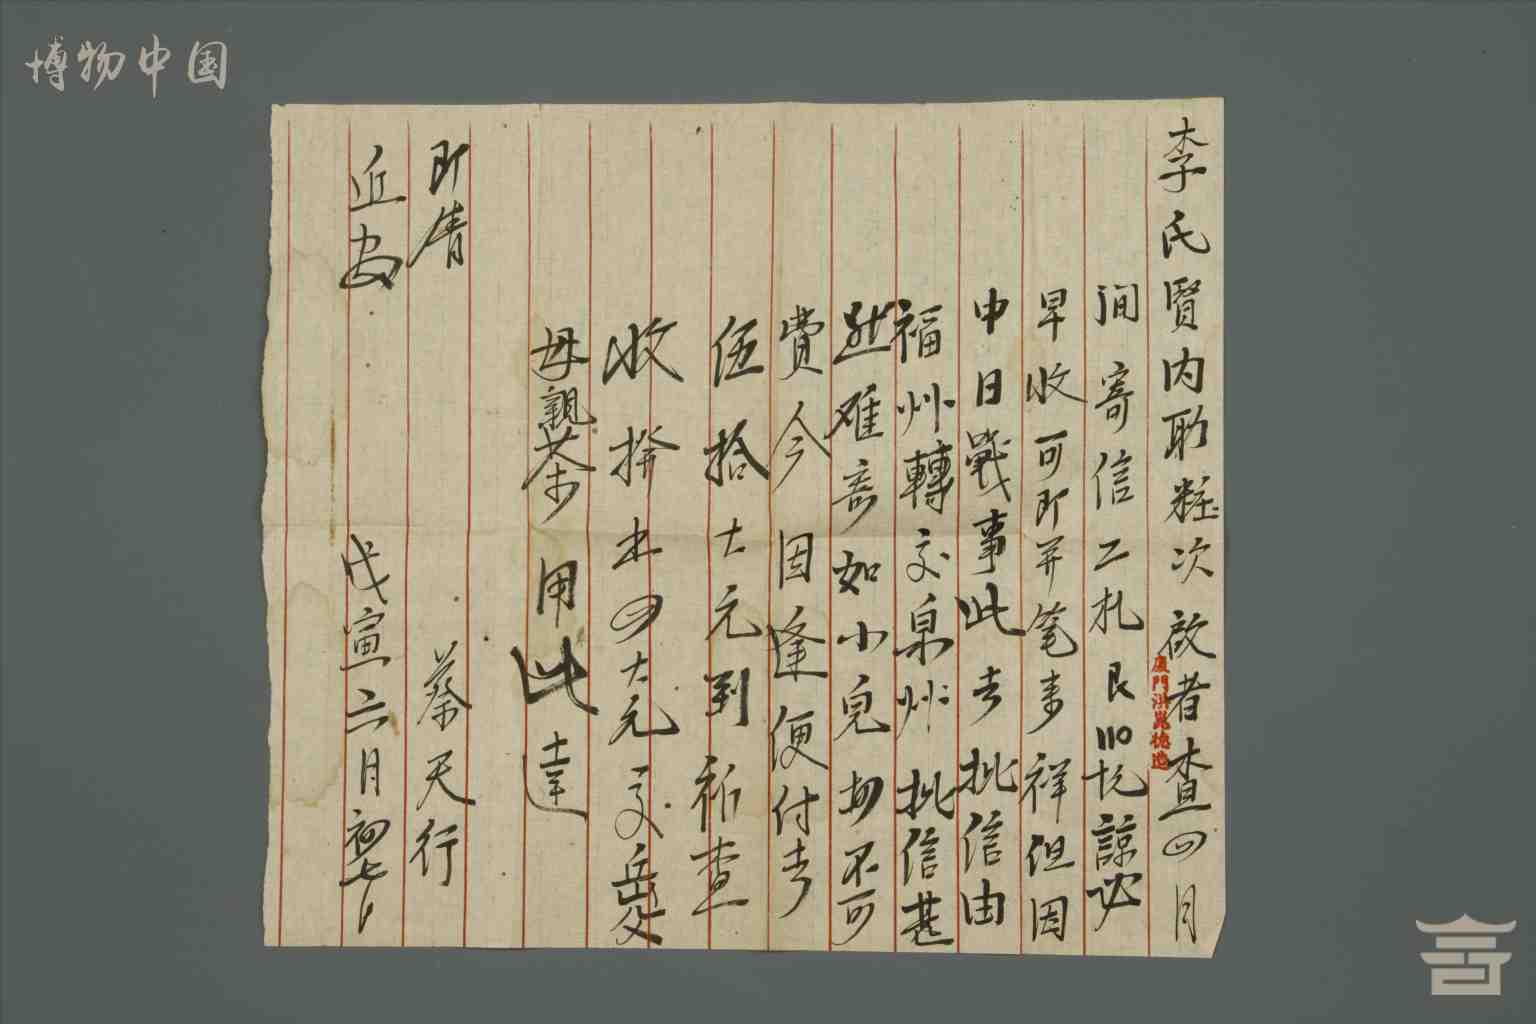 博物中国
李氏賢内助粧次 啟者查四月
间寄信二札艮110忼諒必
早收可即并笔来祥但因
中日戰事此去批信由
福州轉交泉州批信甚
难寄如小兒切不可
費今因逢便付去
伍拾大元到祈查
收拼出四大元交岳父
母親茶用此達
即请
近安
蔡天行
戊寅六月初七
廈門洪萬德造